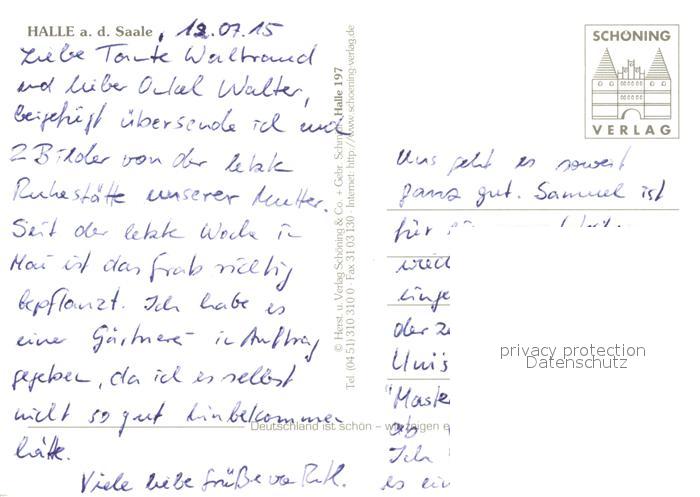 HALLE a. d. Saale, 12.07.15
Liebe Tante Waltraud
und lieber Onkel Walter,
beigefügt übersende ich euch
2 Bilder von der letzte
Ruhestätte unserer Mutter.
Seit der letzte Woche in
Mai ist das Grab richtig
bepflanzt. Ich habe es
einer Gärtnerei in Auftrag
gegeben, da ich es selbst
nicht so gut hinbekommen
hätte.
Viele liebe Grüße von
© Herst. u. Verlag Schöning & Co. + Gebr. Schmidt Halle 197
Tel. (04 51) 310 310 0 · Fax 31 03 130 · Internet: http://www.schoening-verlag.de
Deutschland ist schön – wir zeigen e
SCHÖNING
VERLAG
Uns geht es soweit
ganz gut. Samuel ist
für
einge
der
Unis
"Maste
ab
Ich
es ein
privacy protection
Datenschutz